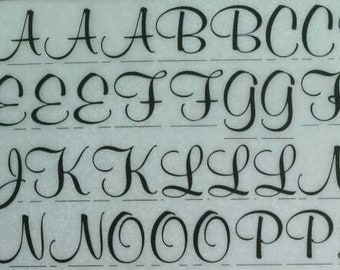 AAABBCC
EEEFFGGF
JKKLLL
NNOOOPP